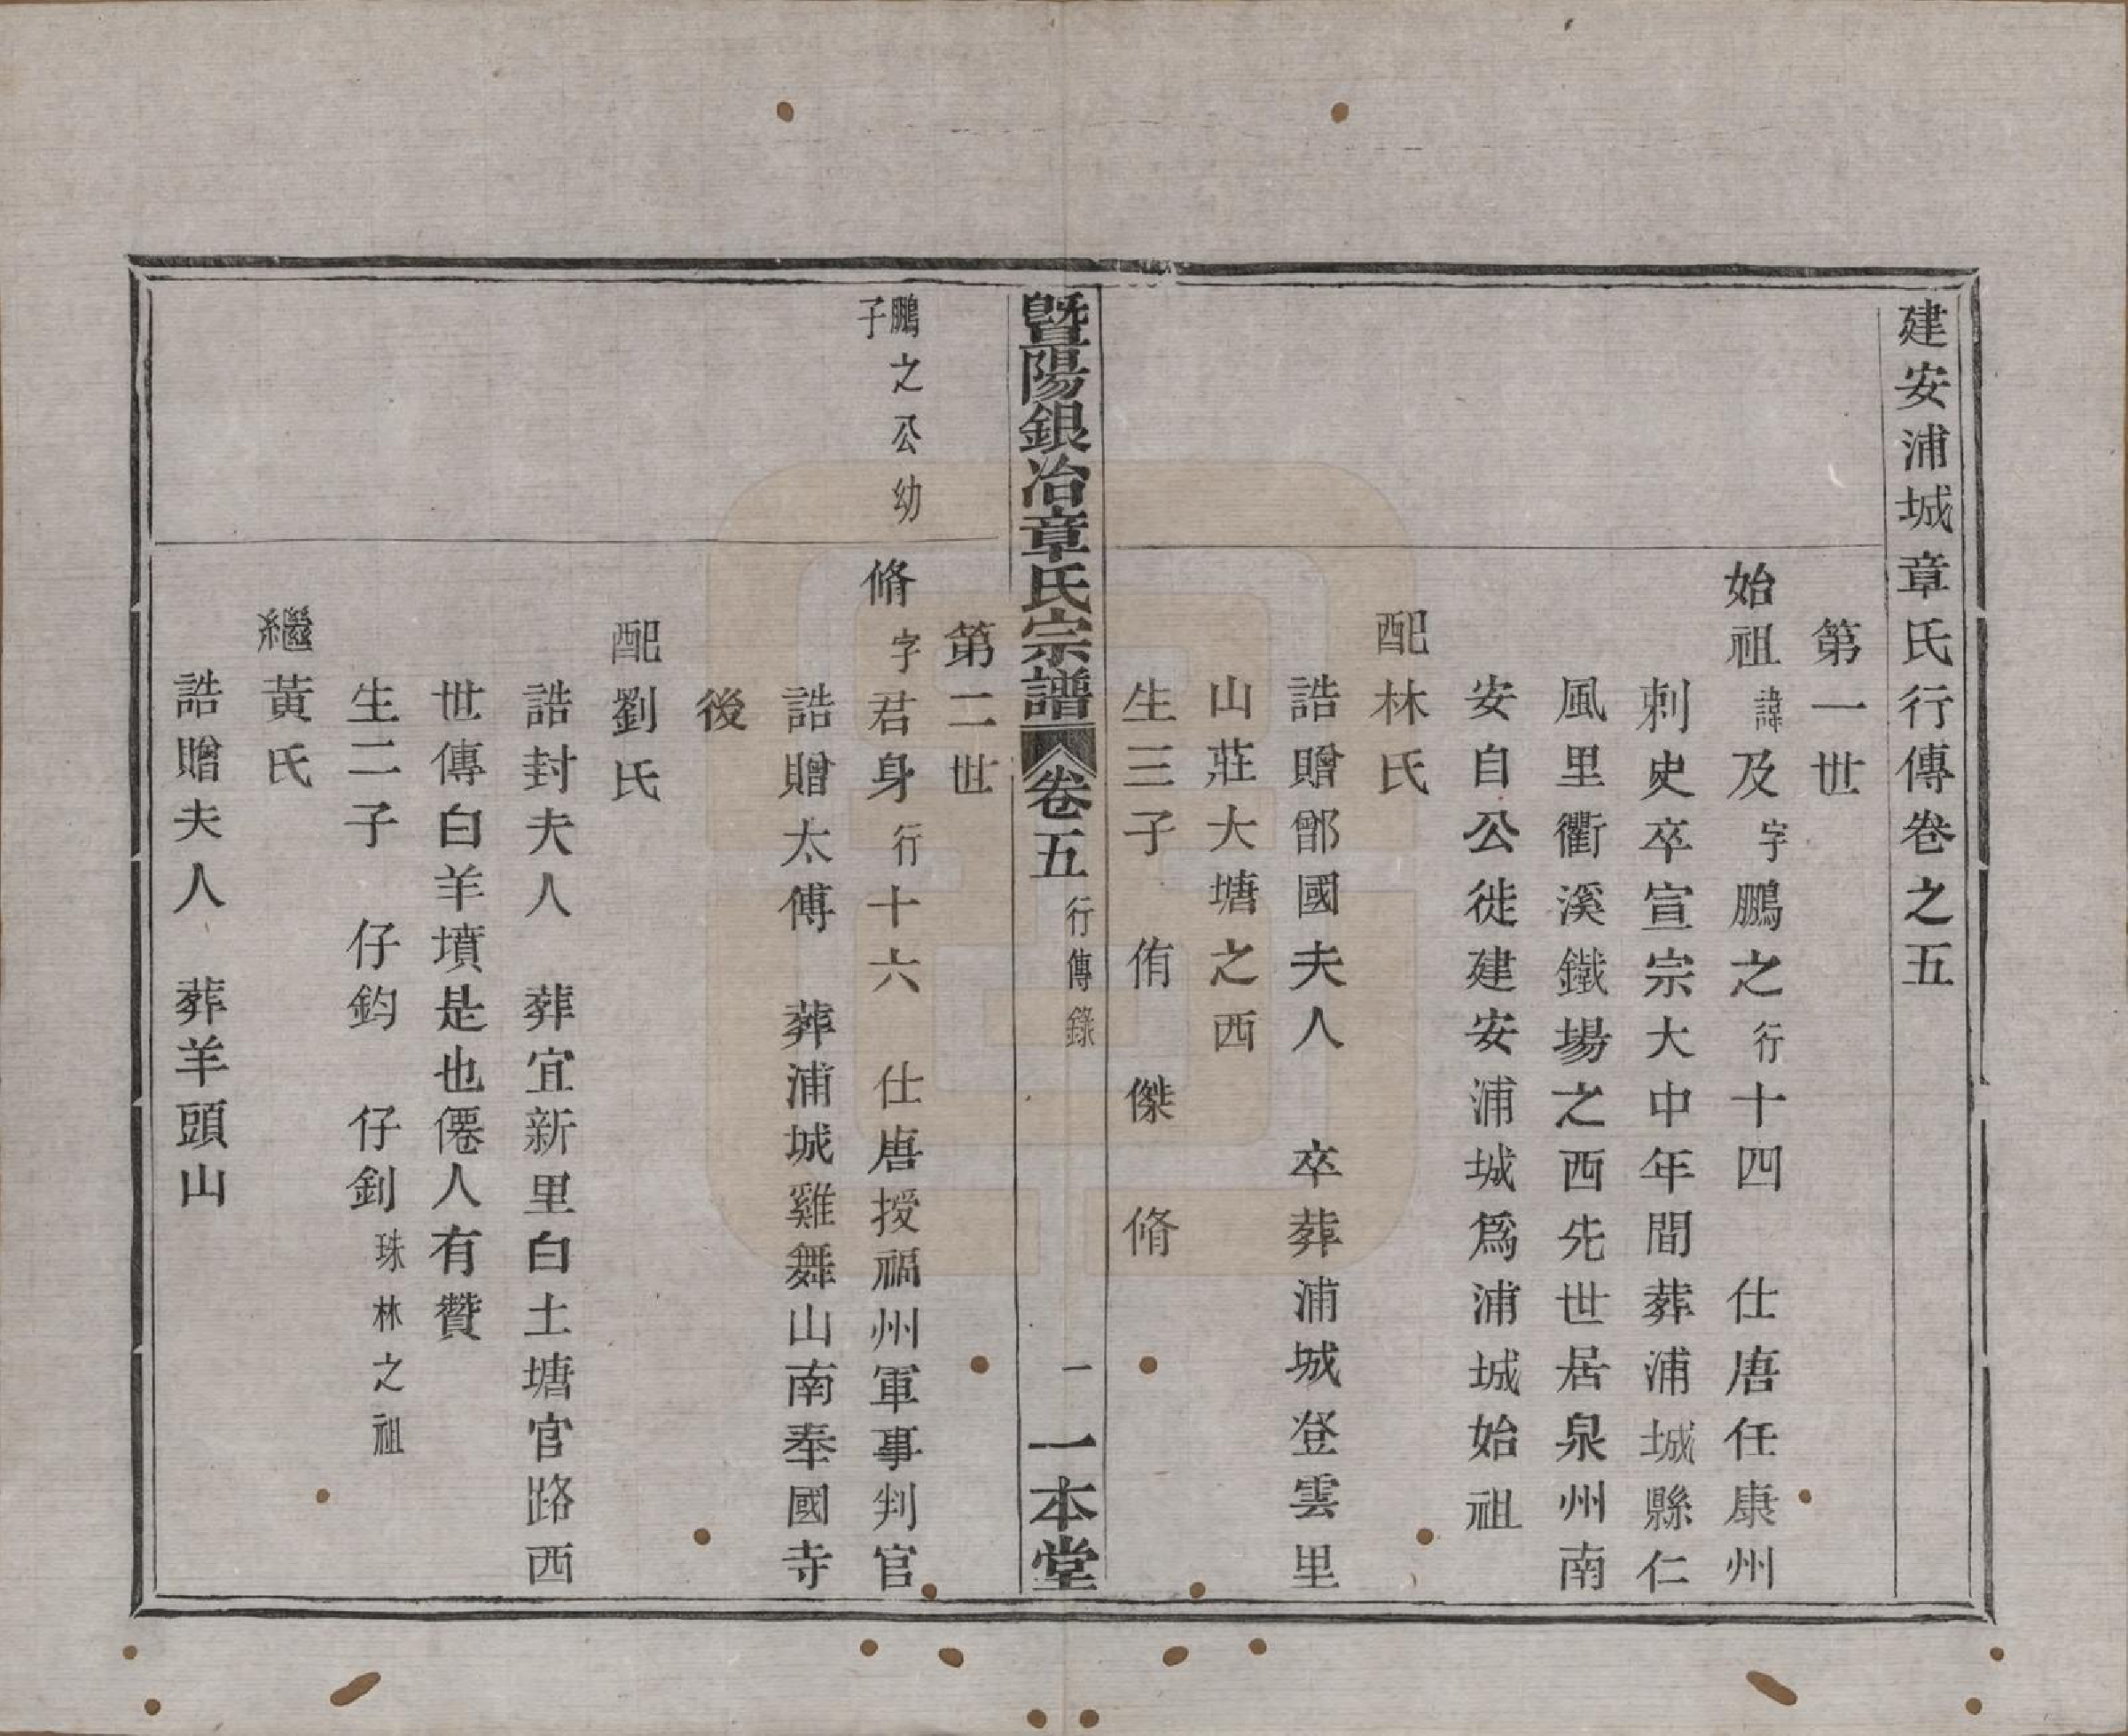 建安浦城章氏行傳卷之五
第一世
始祖諱及字鵬之行十四 仕唐任康州
刺史卒宣宗大中年間葬浦城縣仁
風里衢溪鐵場之西先世居泉州南
安自公徙建安浦城爲浦城始祖
配林氏
誥贈鄫國夫人 卒葬浦城登雲里
山莊大塘之西
生三子 侑 傑 脩
暨陽銀冶章氏宗譜 卷五 行傳錄 一 一本堂
第二世
鵬之公幼子
脩字君身行十六 仕唐授福州軍事判官
誥贈太傅 葬浦城雞舞山南奉國寺
後
配劉氏
誥封夫人 葬宜新里白土塘官路西
世傳白羊墳是也僊人有贊
生二子 仔鈞 仔釗珠林之祖
繼黃氏
誥贈夫人 葬羊頭山